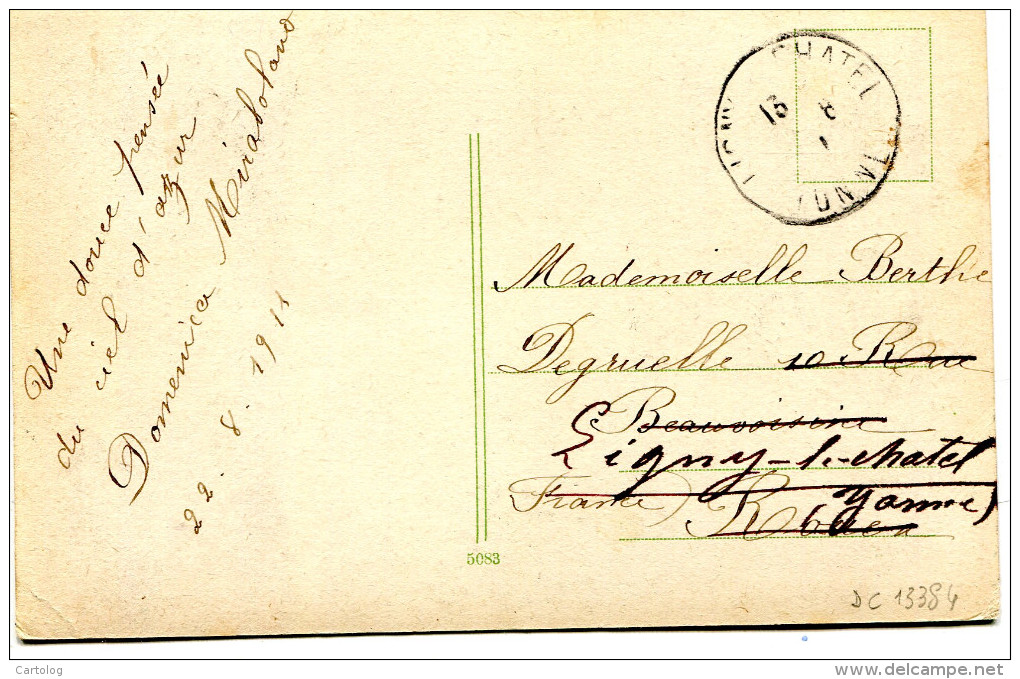 Une douce pensée
du ciel d'azur
Domenica Mirabolano
22. 8. 1911
CHATEL
LIGNY
13 8
YONNE
Mademoiselle Berthe
Degruelle 10 Rue
Beauvoisine
Ligny-le-chatel
France) Rouen
Yonne)
5083
DC 13384
Cartolog
www.delcampe.net